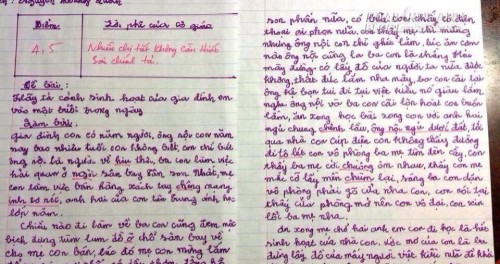 Điểm: Lời phê của cô giáo
4,5 Nhiều chi tiết không cần thiết
Sai chính tả.
Đề bài:
Hãy tả cảnh sinh hoạt của gia đình em
vào một buổi trong ngày
Làm bài:
gia đình con có năm người, ông nội con năm
nay bao nhiêu tuổi con không biết, con chỉ biết
ông nội là người về hưu thôi, ba con làm việc
hải quan ở ngoài sân bay tân sơn nhất, mẹ
con làm việc bán hàng xách tay chồng mang
anh hai của con tên trung anh học
lớp năm.
Chiều nào đi làm về ba con cũng đem
bịch đựng tùm lum đồ ở chỗ sân bay về
cho mẹ con bán, lúc đó mẹ con mừng lắm
son phấn nữa, có bữa con thấy có điện
thoại ai phon nữa, con thấy mẹ thì mừng
nhưng ông nội con thì ghét lắm, lúc ăn cơm
nào ông nội cũng la ba con là thằng Hải
mày đừng có lấy đồ của người ta nữa được
không, thất đức lắm nha mày, ba con cãi lại
ông là bọn tụi đi tụi việt kiều nó giàu lắm,
nghe ông nội với ba con cãi lộn hoài con buồn
lắm, ăn xong học bài xong con với anh hai
ngủ chung
qua nhà con cúp điện con không thấy đường
đi tè lết con vô phòng ba mẹ tìm đèn cầy, con
thấy ba mẹ cởi chuồng ôm nhau, thấy con mẹ
mền chùm lại, sáng ba con dặn
vô phòng phải gõ cửa nha con, con nói tại
thấy cửa phòng mở nên con vô đại, con xin
lỗi ba mẹ nha.
ăn xong mẹ chở hai anh em con đi học là hết
sinh hoạt của nhà con. Ước mơ của con là ba
đừng lấy đồ của mấy người việt kiều nữa để khỏi